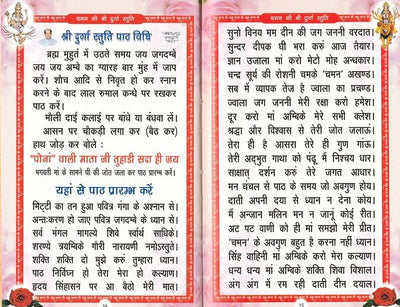 चमन की श्री दुर्गा स्तुति
श्री दुर्गा स्तुति पाठ विधि
ब्रह्म मुहूर्त में उठते समय जय जगदम्बे
जय जय अम्बे का ग्यारह बार मुंह में जाप
करें। शौच आदि से निवृत हो कर स्नान
करने के बाद लाल रुमाल कन्धे पर रखकर
पाठ करें।
मौली दाई कलाई पर बांधे या बंधवा लें।
आसन पर चौकड़ी लगा कर (बैठ कर)
हाथ जोड़ कर बोले :
"पोनां वाली माता नी तुहाडी सदा ही जय
भगवती मां के सामने घी की जोत जला कर पाठ प्रारम्भ करें।
यहां से पाठ प्रारम्भ करें
मिट्टी का तन हुआ पवित्र गंगा के अश्नान से।
अन्तःकरण हो जाए पवित्र जगदम्बे के ध्यान से।
सर्व मंगल मागल्ये शिवे स्वार्थ साधिके।
शरण्ये त्रयम्बिके गौरी नारायणी नमोऽस्तुते।
शक्ति शक्ति दो मुझे करुं तुम्हारा ध्यान।
पाठ निर्विघ्न हो तेरा मेरा हो कल्याण।
हृदय सिंहासन पर आ बैठो मेरी मात।
14
चमन की श्री दुर्गा स्तुति
सुनो विनय मम दीन की जग जननी वरदात।
सुन्दर दीपक घी भरा करुं आज तैयार।
ज्ञान उजाला मां करो मेटो मोह अन्धकार।
चन्द्र सूर्य की रोशनी चमके 'चमन' अखण्ड।
सब में व्यापक तेज है ज्वाला का प्रचण्ड।
ज्वाला जग जननी मेरी रक्षा करो हमेश।
दूर करो मां अम्बिके मेरे सभी कलेश।
श्रद्धा और विश्वास से तेरी जोत जलाऊं।
तेरा ही है आसरा तेरे ही गुण गांऊ।
तेरी अद्भुत गाथा को पंढू मैं निश्चय धार।
साक्षात् दर्शन करुं तेरे जगत आधार।
मन चंचल से पाठ के समय जो अवगुण होय।
दाती अपनी दया से ध्यान न देना कोय।
मैं अन्जान मलिन मन न जानूं कोई रीत।
अट पट वाणी को ही मां समझो मेरी प्रीत।
'चमन' के अवगुण बहुत है करना नहीं ध्यान।
सिंह वाहिनी मां अम्बिके करो मेरा कल्याण।
धन्य धन्य मां अम्बिके शक्ति शिवा विशाल।
अंग अंग में रम रही दाती दीन दयाल।
15